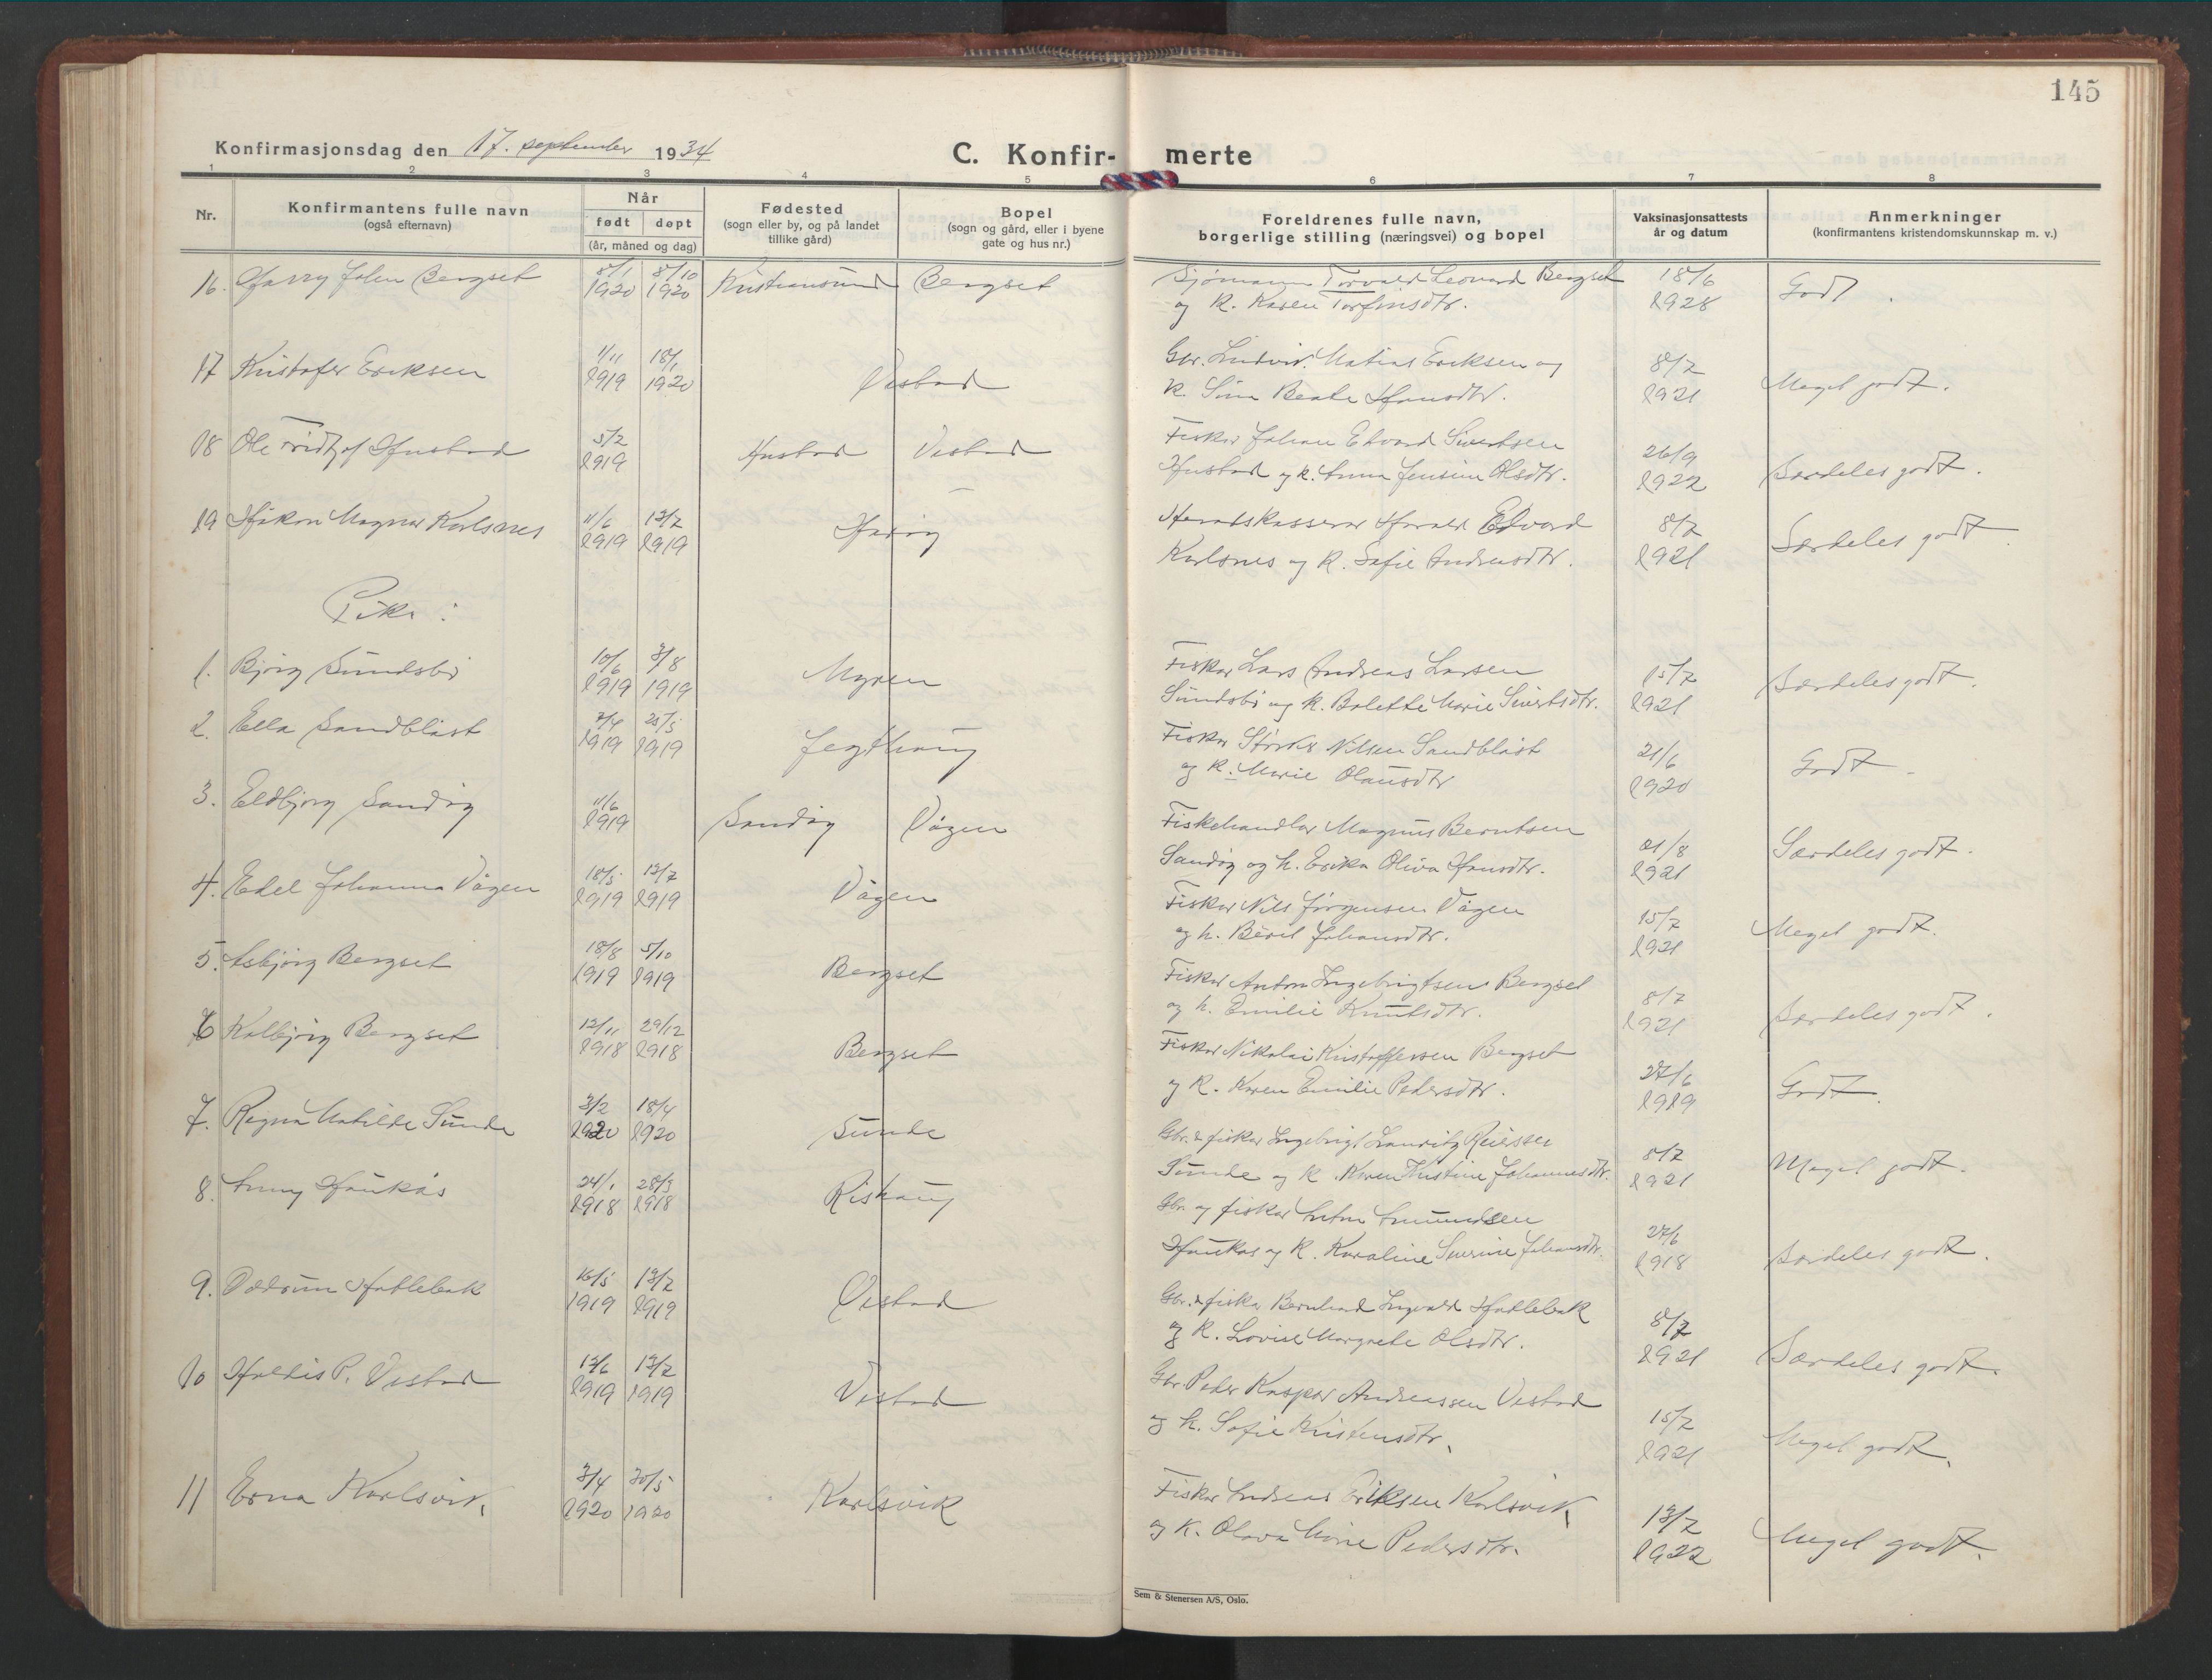 145
Konfirmasjonsdag den 17. september 1934
C. Konfir- merte
1 2 3 4 5 6 7 8
Nr.
Konfirmantens fulle navn
(også efternavn)
Når
født døpt
(år, måned og dag)
Fødested
(sogn eller by, og på landet
tillike gård)
Bopel
(sogn og gård, eller i byene
gate og hus nr.)
Foreldrenes fulle navn,
borgerlige stilling (næringsvei) og bopel
Vaksinasjonsattests
år og datum
Anmerkninger
(konfirmantens kristendomskunnskap m. v.)
16. Harry Johan Bergset 8/1 1920 8/10 1920 Kristiansund Bergset
Sjømann Torvald Leonard Bergset 18/6
og k. Karen Torfinsdtr. 1928 Godt.
17 Kristofer Eriksen 1/11 1919 18/1 1920 Vestad
Gbr. Ludvik Matias Eriksen og 8/7
k. Sina Beate Hansdtr. 1921 Meget godt.
18 Ole Fridtjof Hustad 5/2 1919 Hustad Vestad
Fisker Johan Edvard Sivertsen 26/9
Hustad og k. Anna Jensine Olsdtr. 1922 Særdeles godt.
19 Håkon Magnar Karlsnes 11/6 1919 13/7 1919 Harøy
Heradskasserer Harald Edvard 8/7
Karlsnes og k. Sofie Andreasdtr. 1921 Særdeles godt.
Piker:
1. Bjørg Sundsbø 10/6 1919 3/8 1919 Myren
Fisker Lars Andreas Larsen 15/7
Sundsbø og k. Balette Marie Sivertsdtr. 1921 Særdeles godt.
2. Ella Sandblåst 7/4 1919 25/5 1919 Jegthaug
Fisker Sterker Nilsen Sandblåst 21/6
og k. Marie Olausdtr 1920 Godt.
3. Eldbjørg Sandøy 11/6 1919 Sandøy Vågen
Fiskehandler Magnus Berntsen 31/8
Sandøy og h. Erika Oliva Hansdtr. 1921 Særdeles godt.
4. Edel Johanna Vågen 18/5 1919 13/7 1919 Vågen
Fisker Nils Jørgensen Vågen 15/7
og h. Beril Johansdtr. 1921 Meget godt.
5. Asbjørg Bergset 18/8 1919 5/10 1919 Bergset
Fisker Anton Ingebrigtsens Bergset 8/7
og h. Emilie Knutsdtr. 1921 Særdeles godt.
6 Kolbjørg Bergset 12/11 1918 29/12 1918 Bergset
Fisker Nikolai Kristoffersen Bergset 27/6
og k. Karen Emilie Pedersdtr. 1919 Godt.
7. Ragna Matilde Sunde 3/2 1920 18/4 1920 Sunde
Gbr. & fisker Ingebrigt Lauritz Reiersen 8/7
Sunde og k. Karen Kristine Johannesdtr. 1921 Meget godt.
8. Anny Haukås 24/1 1918 28/3 1918 Rishaug
Gbr. og fisker Anton Amundsen 27/6
Haukås og k. Karoline Severine Johansdtr. 1918 Særdeles godt.
9. Oddrun Hatlebak 16/5 1919 13/7 1919 Vestad
Gbr. & fisker Bernhard Ingvald Hatlebak 8/7
og k. Lovise Margrete Olsdtr. 1921 Særdeles godt.
10 Haldis P. Vestad 13/6 1919 13/7 1919 Vestad
Gbr. Peder Kasper Andreassen Vestad 15/7
og h. Sofie Kristensdtr. 1921 Meget godt.
11 Erna Karlsvik 3/4 1920 30/5 1920 Karlsvik
Fisker Andreas Eriksen Karlsvik 13/7
og k. Olava Marie Pedersdtr. 1922 Meget godt.
Sem & Stenersen A/S, Oslo.